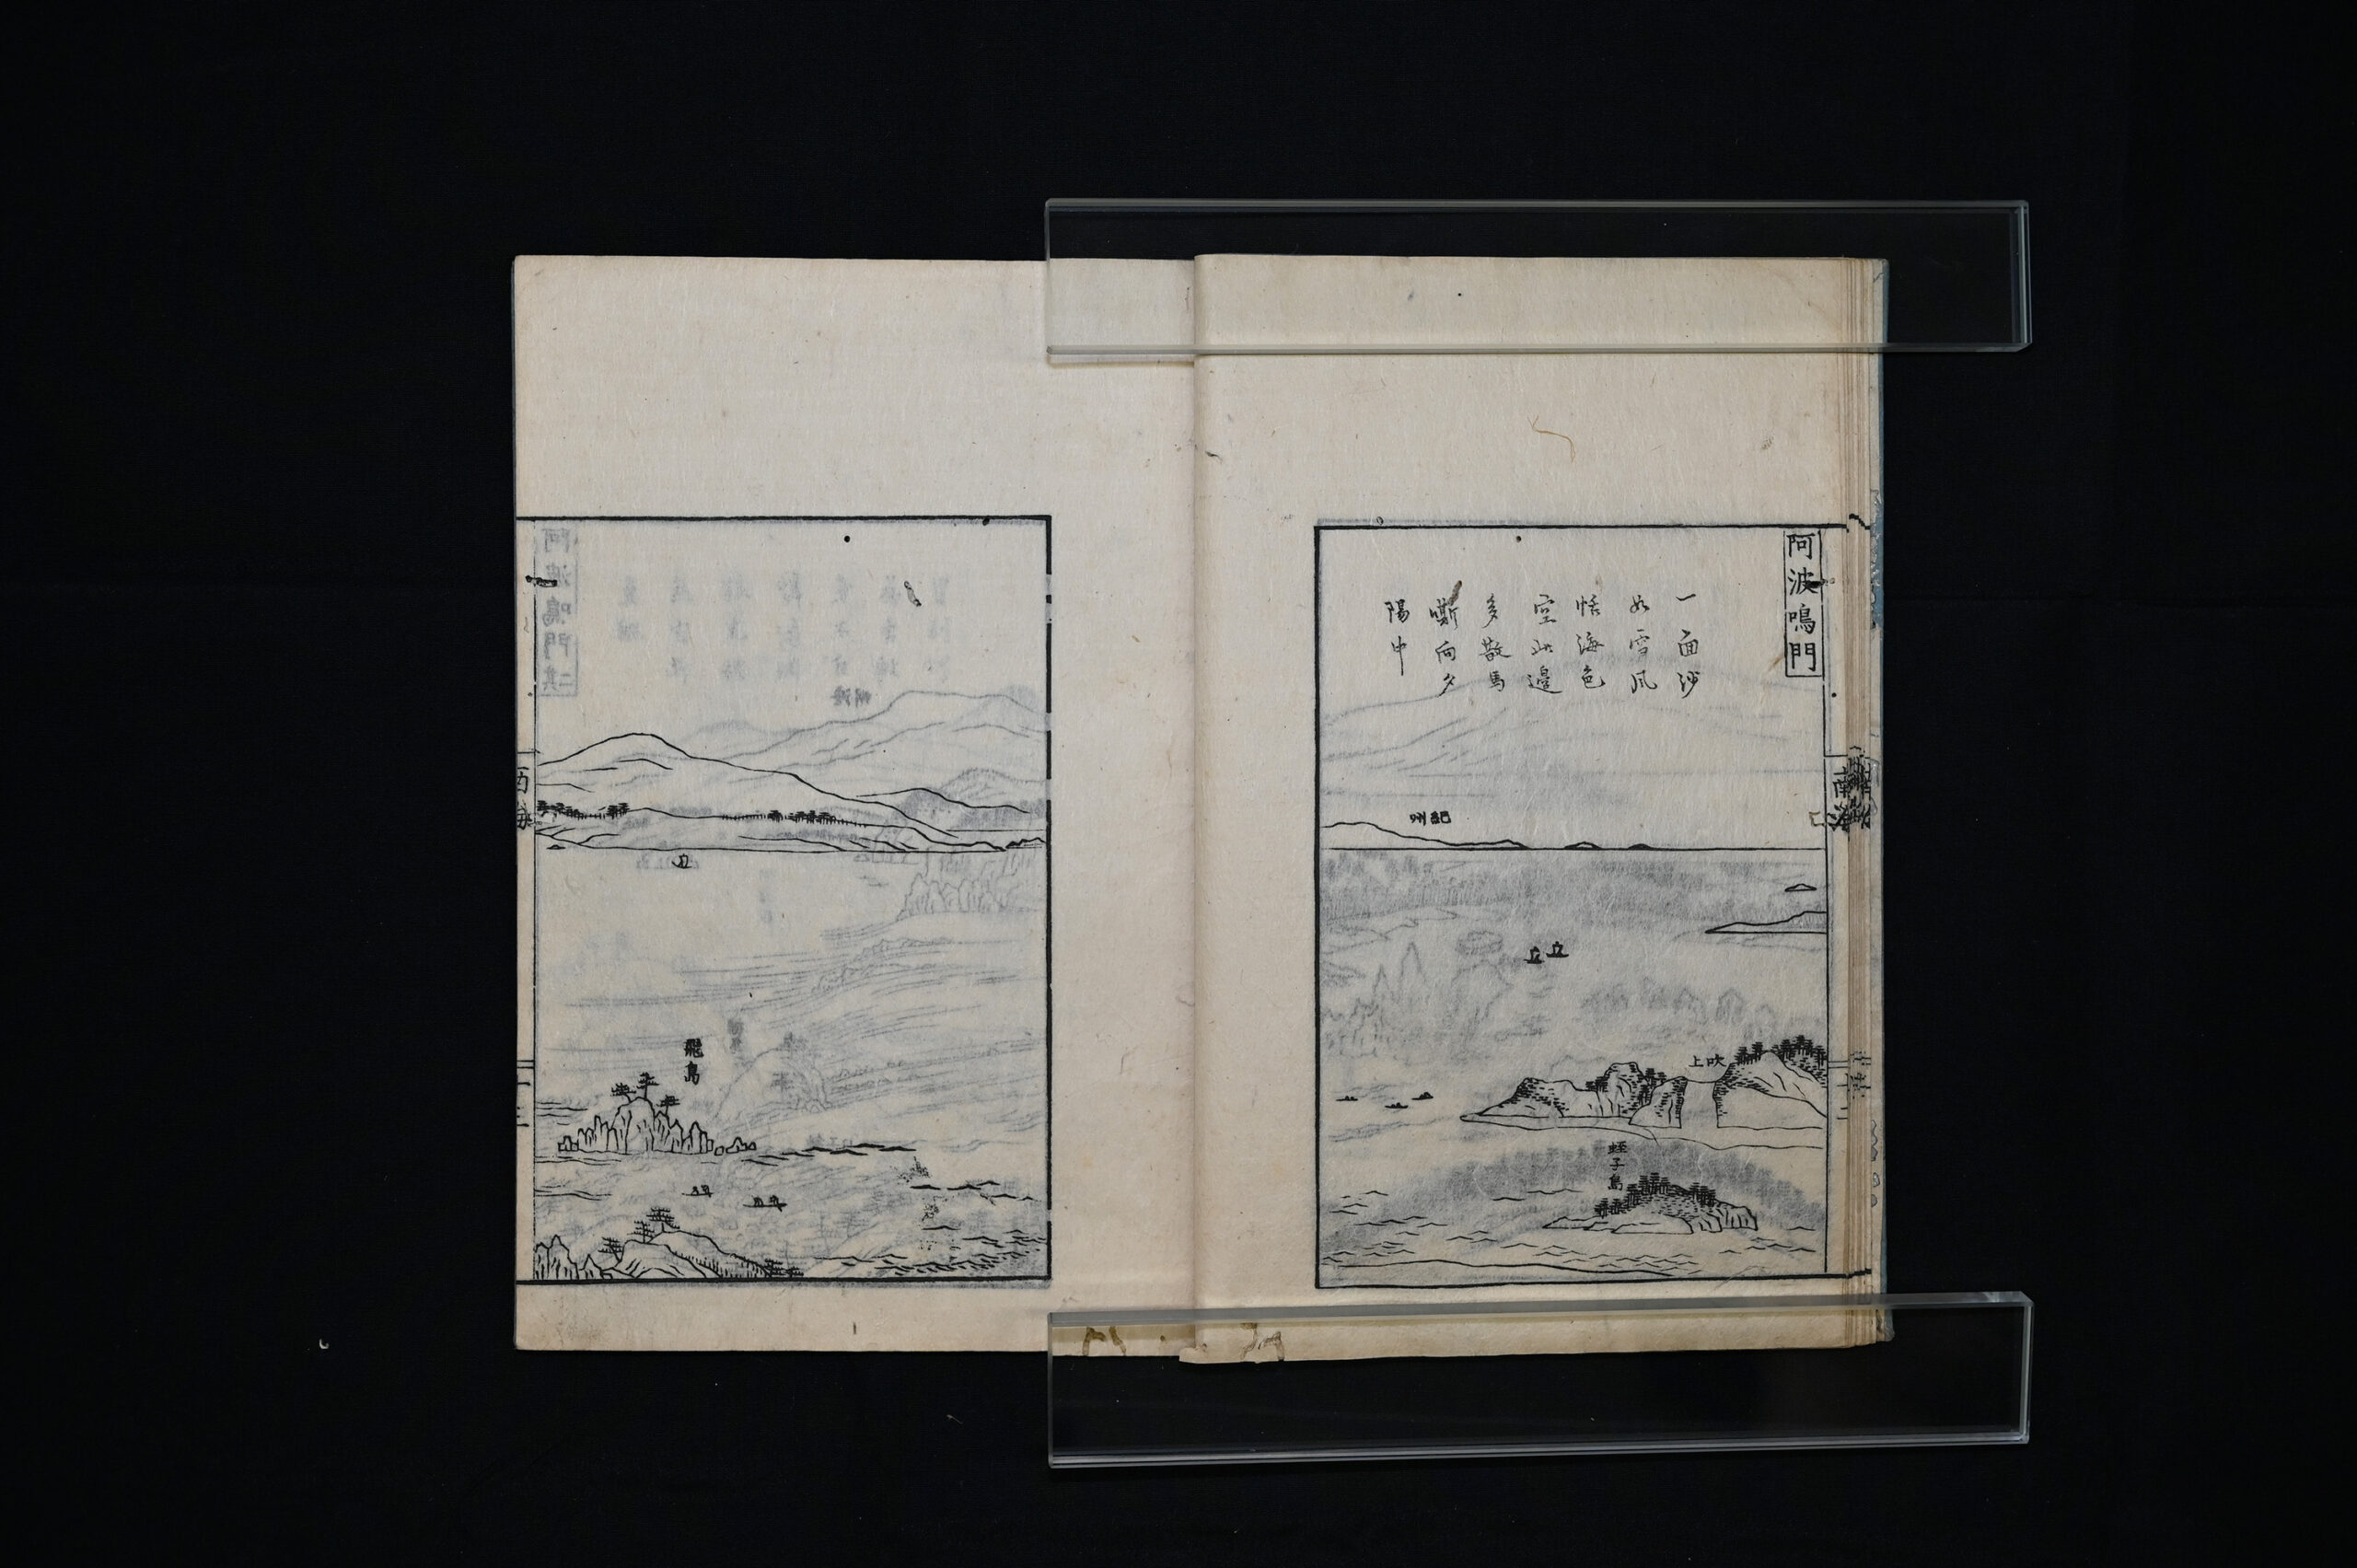 阿波鳴門
一面沙
如雪風
恬海色
空此邊
多散馬
嘶向夕
陽中
紀州
吹上
蛭子島
飛島